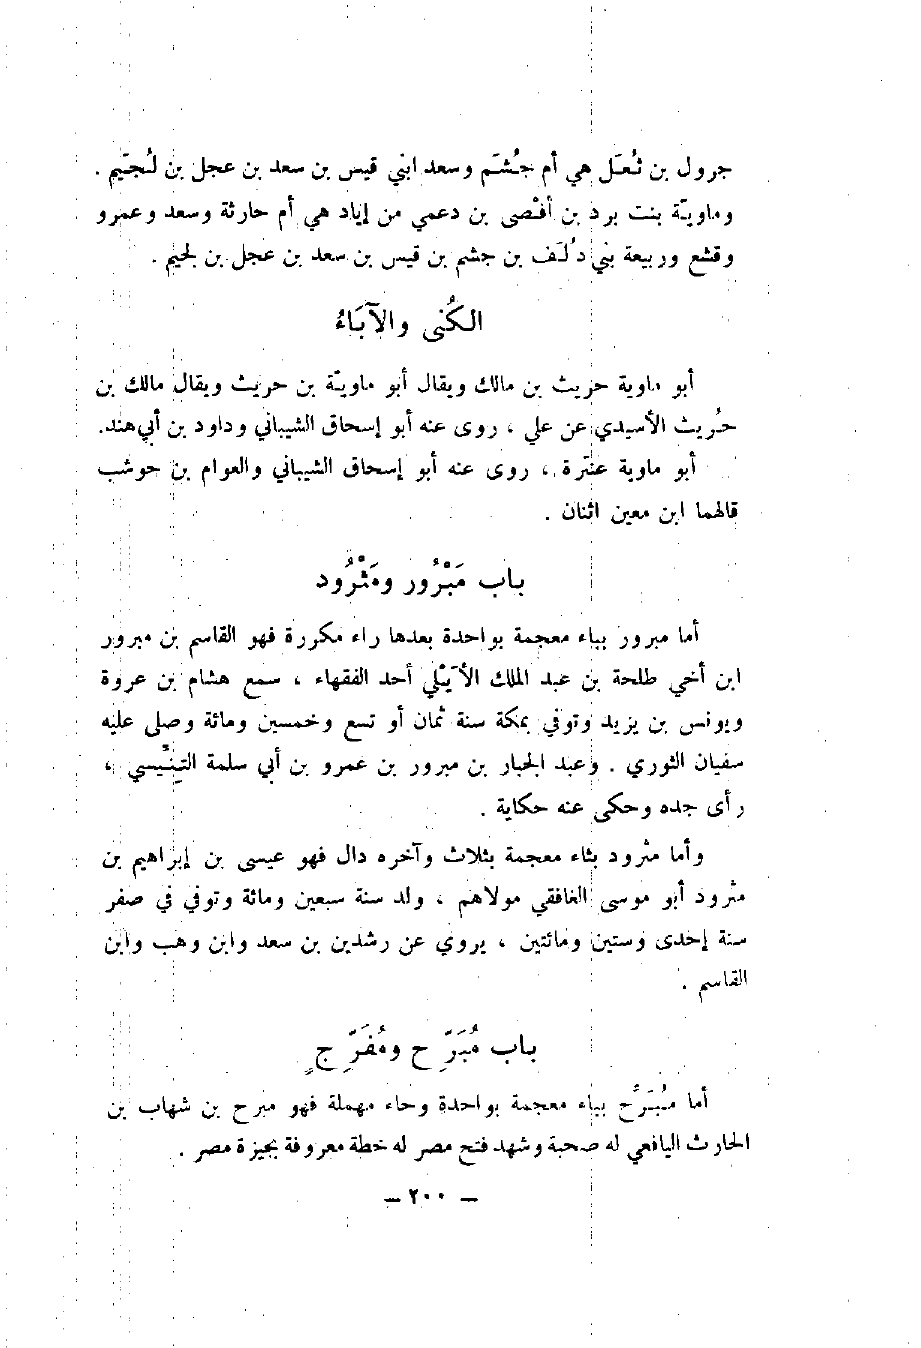 جرول بن ثُعَل هي أم جُشَم وسعد ابني قيس بن سعد بن عجل بن لُجَيم .
وماويّة بنت برد بن أَفْصى بن دعمي من إياد هي أم حارثة وسعد وعمرو
وقشع وربيعة بني دُلَف بن جشم بن قيس بن سعد بن عجل بن لجيم .
الكُنى والآبَاءُ
أبو ماوية حريث بن مالك ويقال أبو ماويّة بن حريث ويقال مالك بن
حُريث الأسيدي عن علي ، روى عنه أبو إسحاق الشيباني وداود بن أبي هند.
أبو ماوية عنترة ، روى عنه أبو إسحاق الشيباني والعوام بن حوشب
قالهما ابن معين اثنان .
باب مَبْرُور ومَثْرُود
أما مبرور بباء معجمة بواحدة بعدها راء مكررة فهو القاسم بن مبرور
ابن أخي طلحة بن عبد الملك الأَيْلي أحد الفقهاء ، سمع هشام بن عروة
ويونس بن يزيد وتوفي بمكة سنة ثمان أو تسع وخمسين ومائة وصلى عليه
سفيان الثوري . وعبد الجبار بن مبرور بن عمرو بن أبي سلمة التِنِّيسي ،
رأى جده وحكى عنه حكاية .
وأما مثرود بثاء معجمة بثلاث وآخره دال فهو عيسى بن إبراهيم بن
مثرود أبو موسى الغافقي مولاهم ، ولد سنة سبعين ومائة وتوفي في صفر
سنة إحدى وستين ومائتين ، يروي عن رشدين بن سعد وابن وهب وابن
القاسم .
باب مُبَرِّح ومُفَرِّجٍ
أما مُبَرِّح بباء معجمة بواحدة وحاء مهملة فهو مبرح بن شهاب بن
الحارث اليافعي له صحبة وشهد فتح مصر له خطة معروفة بجيزة مصر .
— ٢٠٠ —